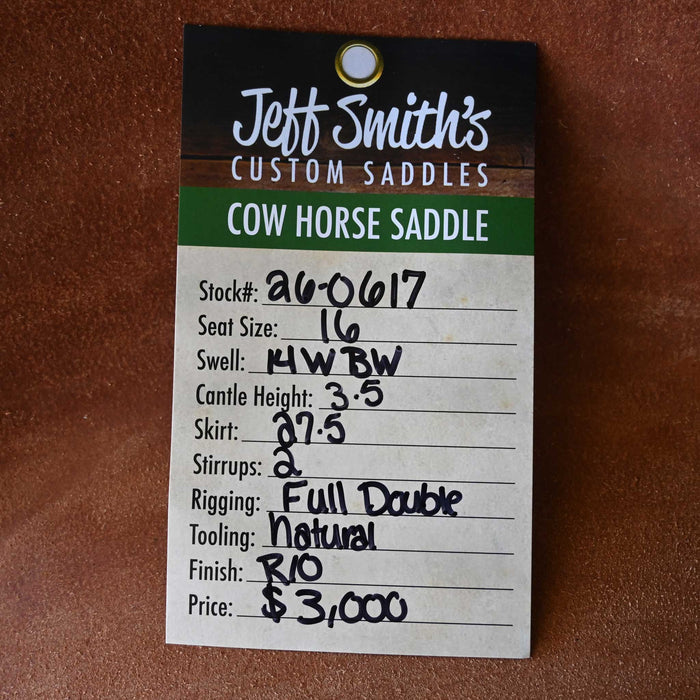 Jeff Smith's
CUSTOM SADDLES
COW HORSE SADDLE
Stock#: 26-0617
Seat Size: 16
Swell: 14W BW
Cantle Height: 3.5
Skirt: 27.5
Stirrups: 2
Rigging: Full Double
Tooling: Natural
Finish: R/O
Price: $3,000